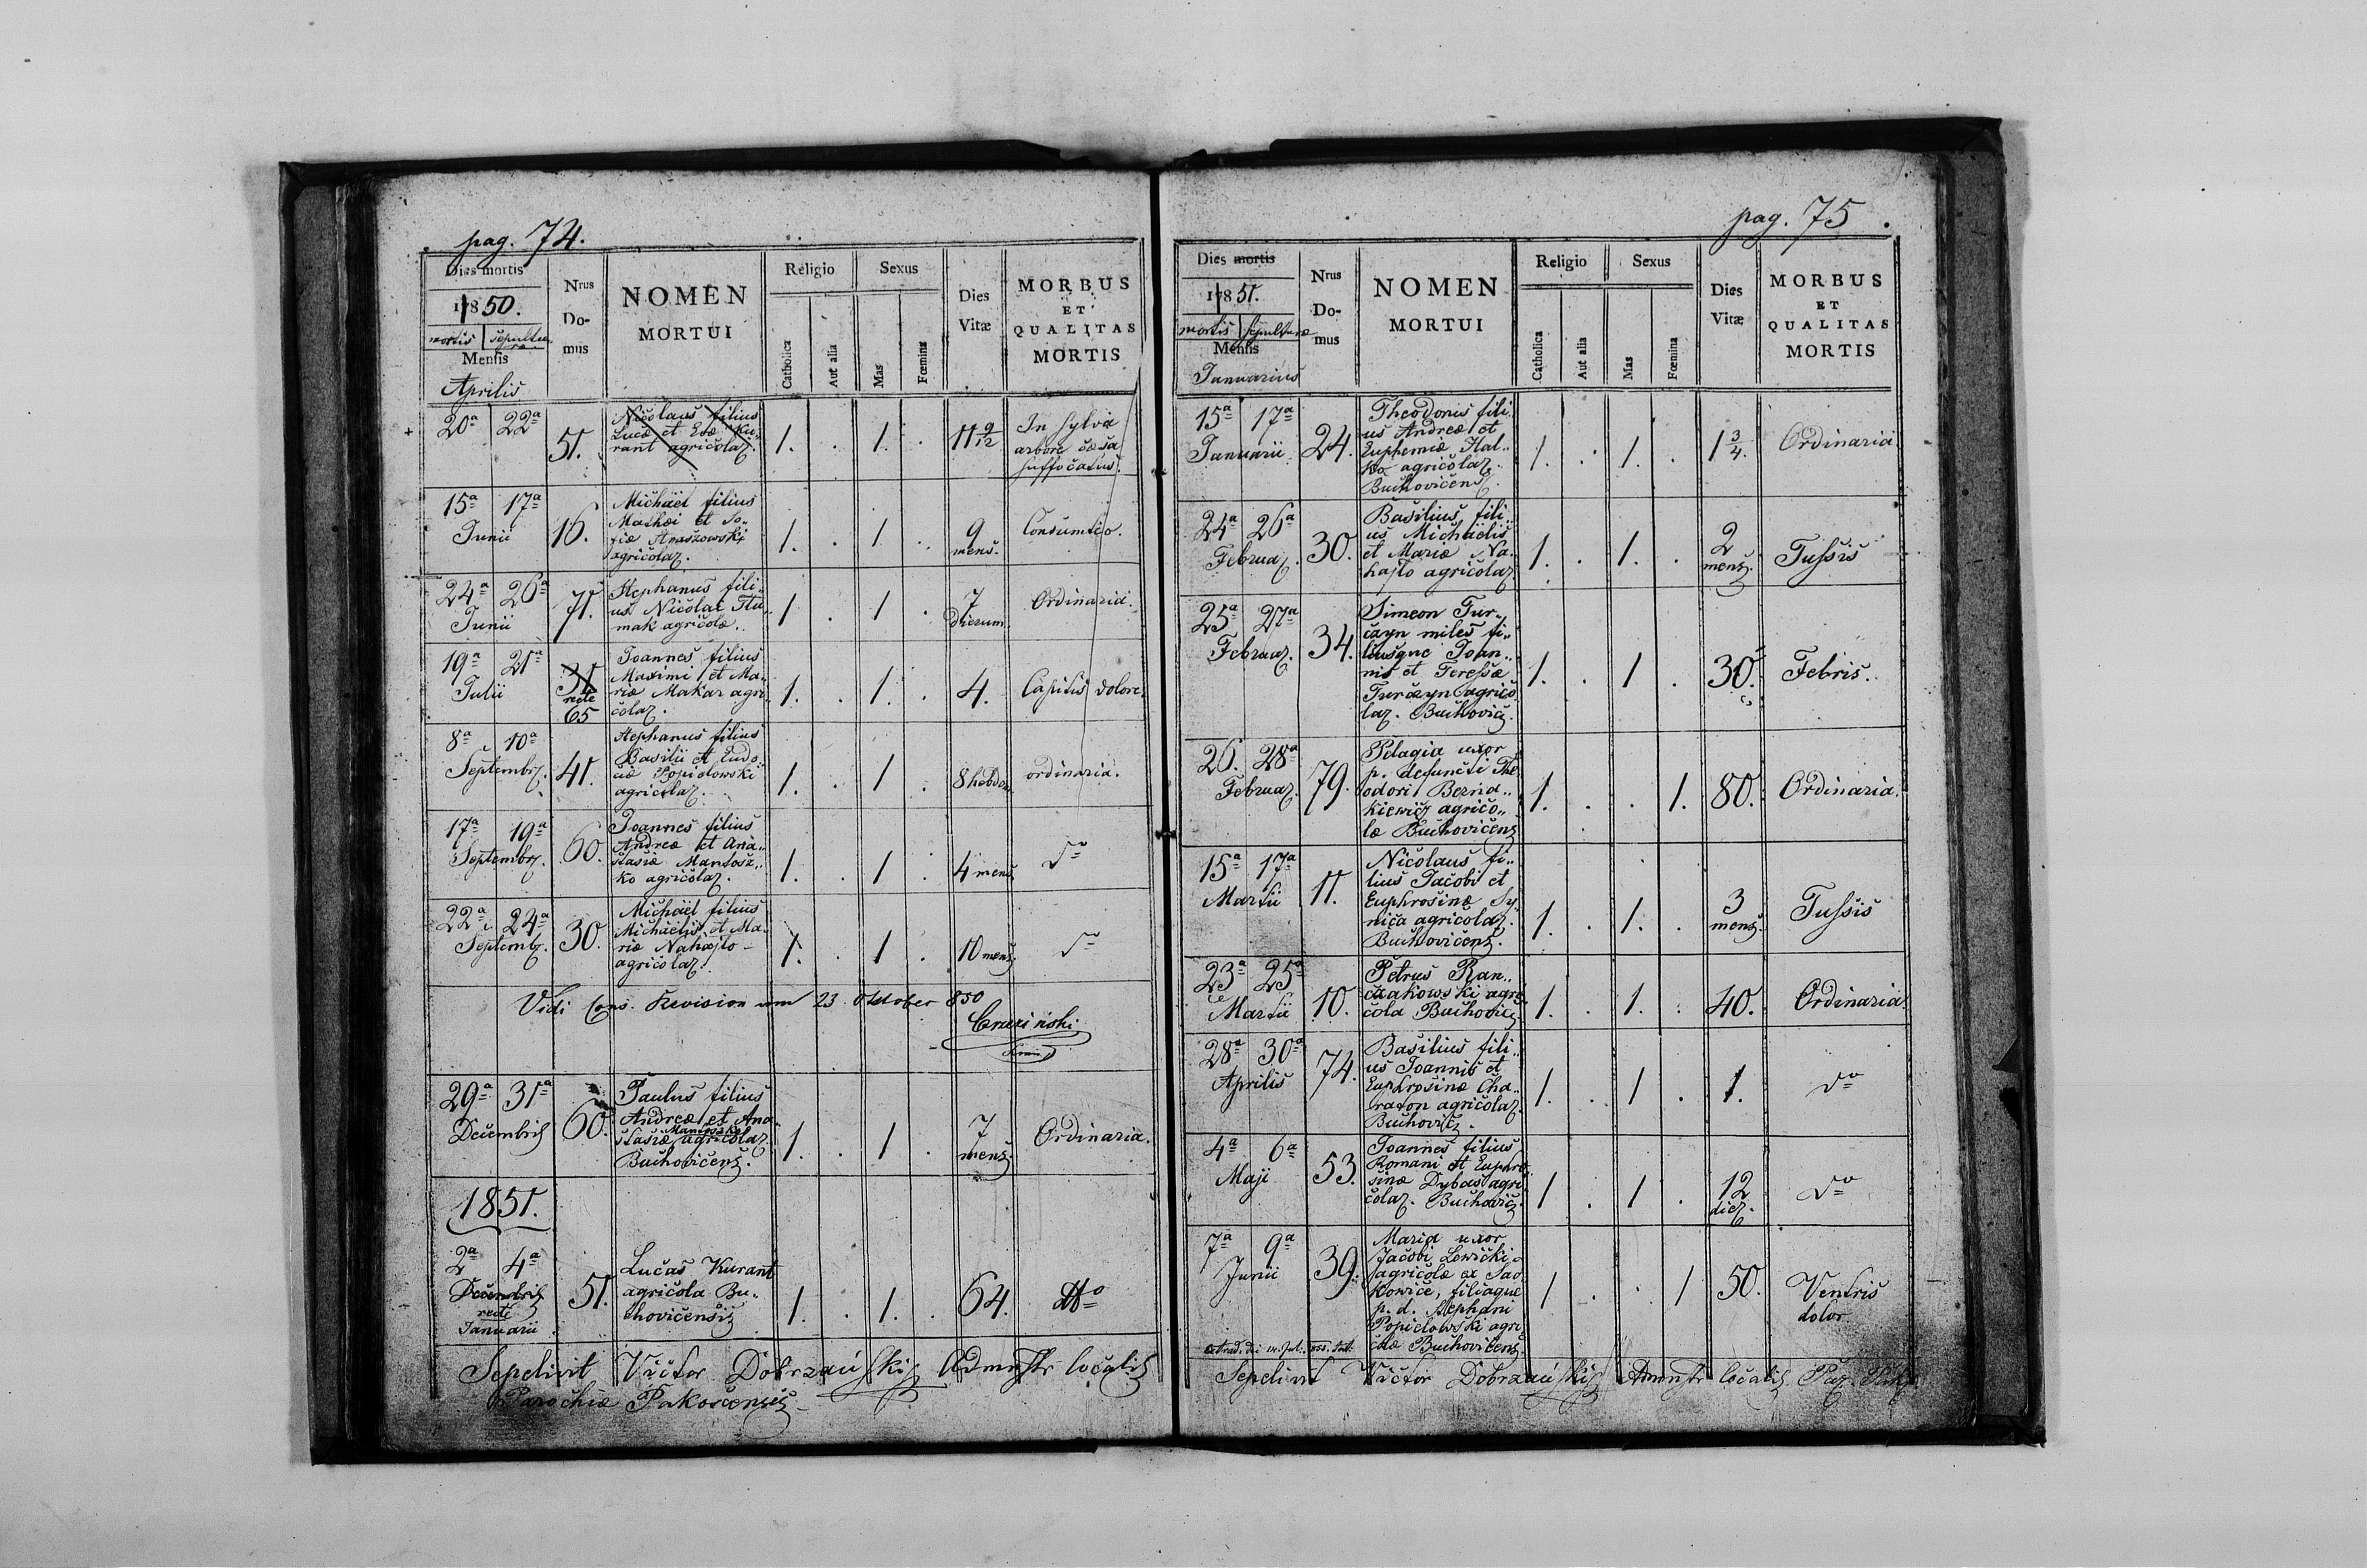 pag. 74.
Dies mortis
1850.
mortis sepulturæ
Mensis
Aprilis
Nrus
Do-
mus
NOMEN
MORTUI
Religio
Catholica
Aut alia
Sexus
Mas
Fœmina
Dies
Vitæ
MORBUS
ET
QUALITAS
MORTIS
20a 22a
51.
Nicolaus filius
Lucæ et Evæ Ku„
rant agricolaz.
1. . 1. .
11 9/12
In sylva
arbore cæsa
suffocatus.
15a 17a
Junii
16.
Michäel filius
Mathæi et So„
fiæ Anaszowski
agricolaz.
1. . 1 .
9
mens.
Consumtio.
24a 26a
Junii
71.
Stephanus fili„
us Nicolai Tlu„
mak agricolæ.
1 . 1 .
7
dierum.
Ordinaria.
19a 21a
Julii
31
recte
65
Joannes filius
Maximi et Ma„
riæ Makar agri„
colaz.
1. . 1. .
4.
Capitis dolore.
8a 10a
Septembrz.
41.
Stephanus filius
Basilii et Eudo„
ciæ Popielowski
agricolaz.
1. . 1 .
8 hebdom.
ordinaria.
17a 19a
Septembrz.
60.
Joannes filius
Andreæ et Ana„
stasiæ Mantosz„
ko agricolaz.
1. . 1 .
4 mens.
do
22a 24a
Septembz.
30.
Michäel filius
Michäelis et Ma„
riæ Nahajlo
agricolaz.
1. . 1 .
10 mens.
do
Vidi Cons. Revision am 23 Oktober 850
29a 31a
Decembris
60.
Paulus filius
Andreæ et Ana„
Mantoszko
stasiæ agricolaz.
Buchovicens.
1. . 1 .
7
mens.
Ordinaria.
1851.
2a 4a
Decembris
recte
Januarii
51.
Lucas Kurant
agricola Bu„
chovicensis
1. . 1. .
64.
do
Sepelivit Victor Dobrzański Admnstr localis
Parochiæ Pakoscensis
pag. 75.
Dies mortis
1851.
mortis sepulturæ
Mensis
Januarius
Nrus
Do-
mus
NOMEN
MORTUI
Religio
Catholica
Aut alia
Sexus
Mas
Fœmina
Dies
Vitæ
MORBUS
ET
QUALITAS
MORTIS
15a 17a
Januarii
24.
Theodorus fili„
us Andreæ et
Euphemiæ Hal„
ko agricolaz.
Buchovicens.
1. . 1. .
1 3/4.
Ordinaria
24a 26a
Februaz.
30.
Basilius fili„
us Michäelis
et Mariæ Na„
hajlo agricolaz.
1. . 1. .
2
mens.
Tussis
25a 27a
Februaz.
34.
Simeon Tur„
czyn miles fi„
liusque Joan„
nis et Teressæ
Turczyn agrico
laz. Buchovic.
1. . 1 .
30.
Febris.
26. 28a
Februaz.
79.
Pelagia uxor
p. defuncti The„
odori Berna„
kiewicz agrico„
læ Buchovicens
1. . . 1.
80.
Ordinaria.
15a 17a
Martii
11.
Nicolaus fi„
lius Jacobi et
Euphrosinæ Sy„
nica agricolaz.
Buchovicens.
1. . 1. .
3
mens.
Tussis
23a 25a
Martii
10.
Petrus Ran„
czakowski agri„
cola Buchovics
1. . 1. .
40.
Ordinaria
28a 30a
Aprilis
74.
Basilius fili„
us Joannis et
Euphrosinæ Cha„
raton agricolaz.
Buchovics.
1. . 1 .
1.
do
4a 6a
Maji
53.
Joannes filius
Romani et Euphro
sinæ Dybas agri
colaz. Buchovics.
1 . 1 .
12
diez.
do
7a 9a
Junii
39.
Maria uxor
Jacobi Lewicki
agricolæ ex Sad
kowice, filiaque
p. d. Stephani
Popielowski agri
colæ Buchovicens.
1 . . 1
50.
Ventris
dolor
Sepelivit Victor Dobrzański Admnstr localis